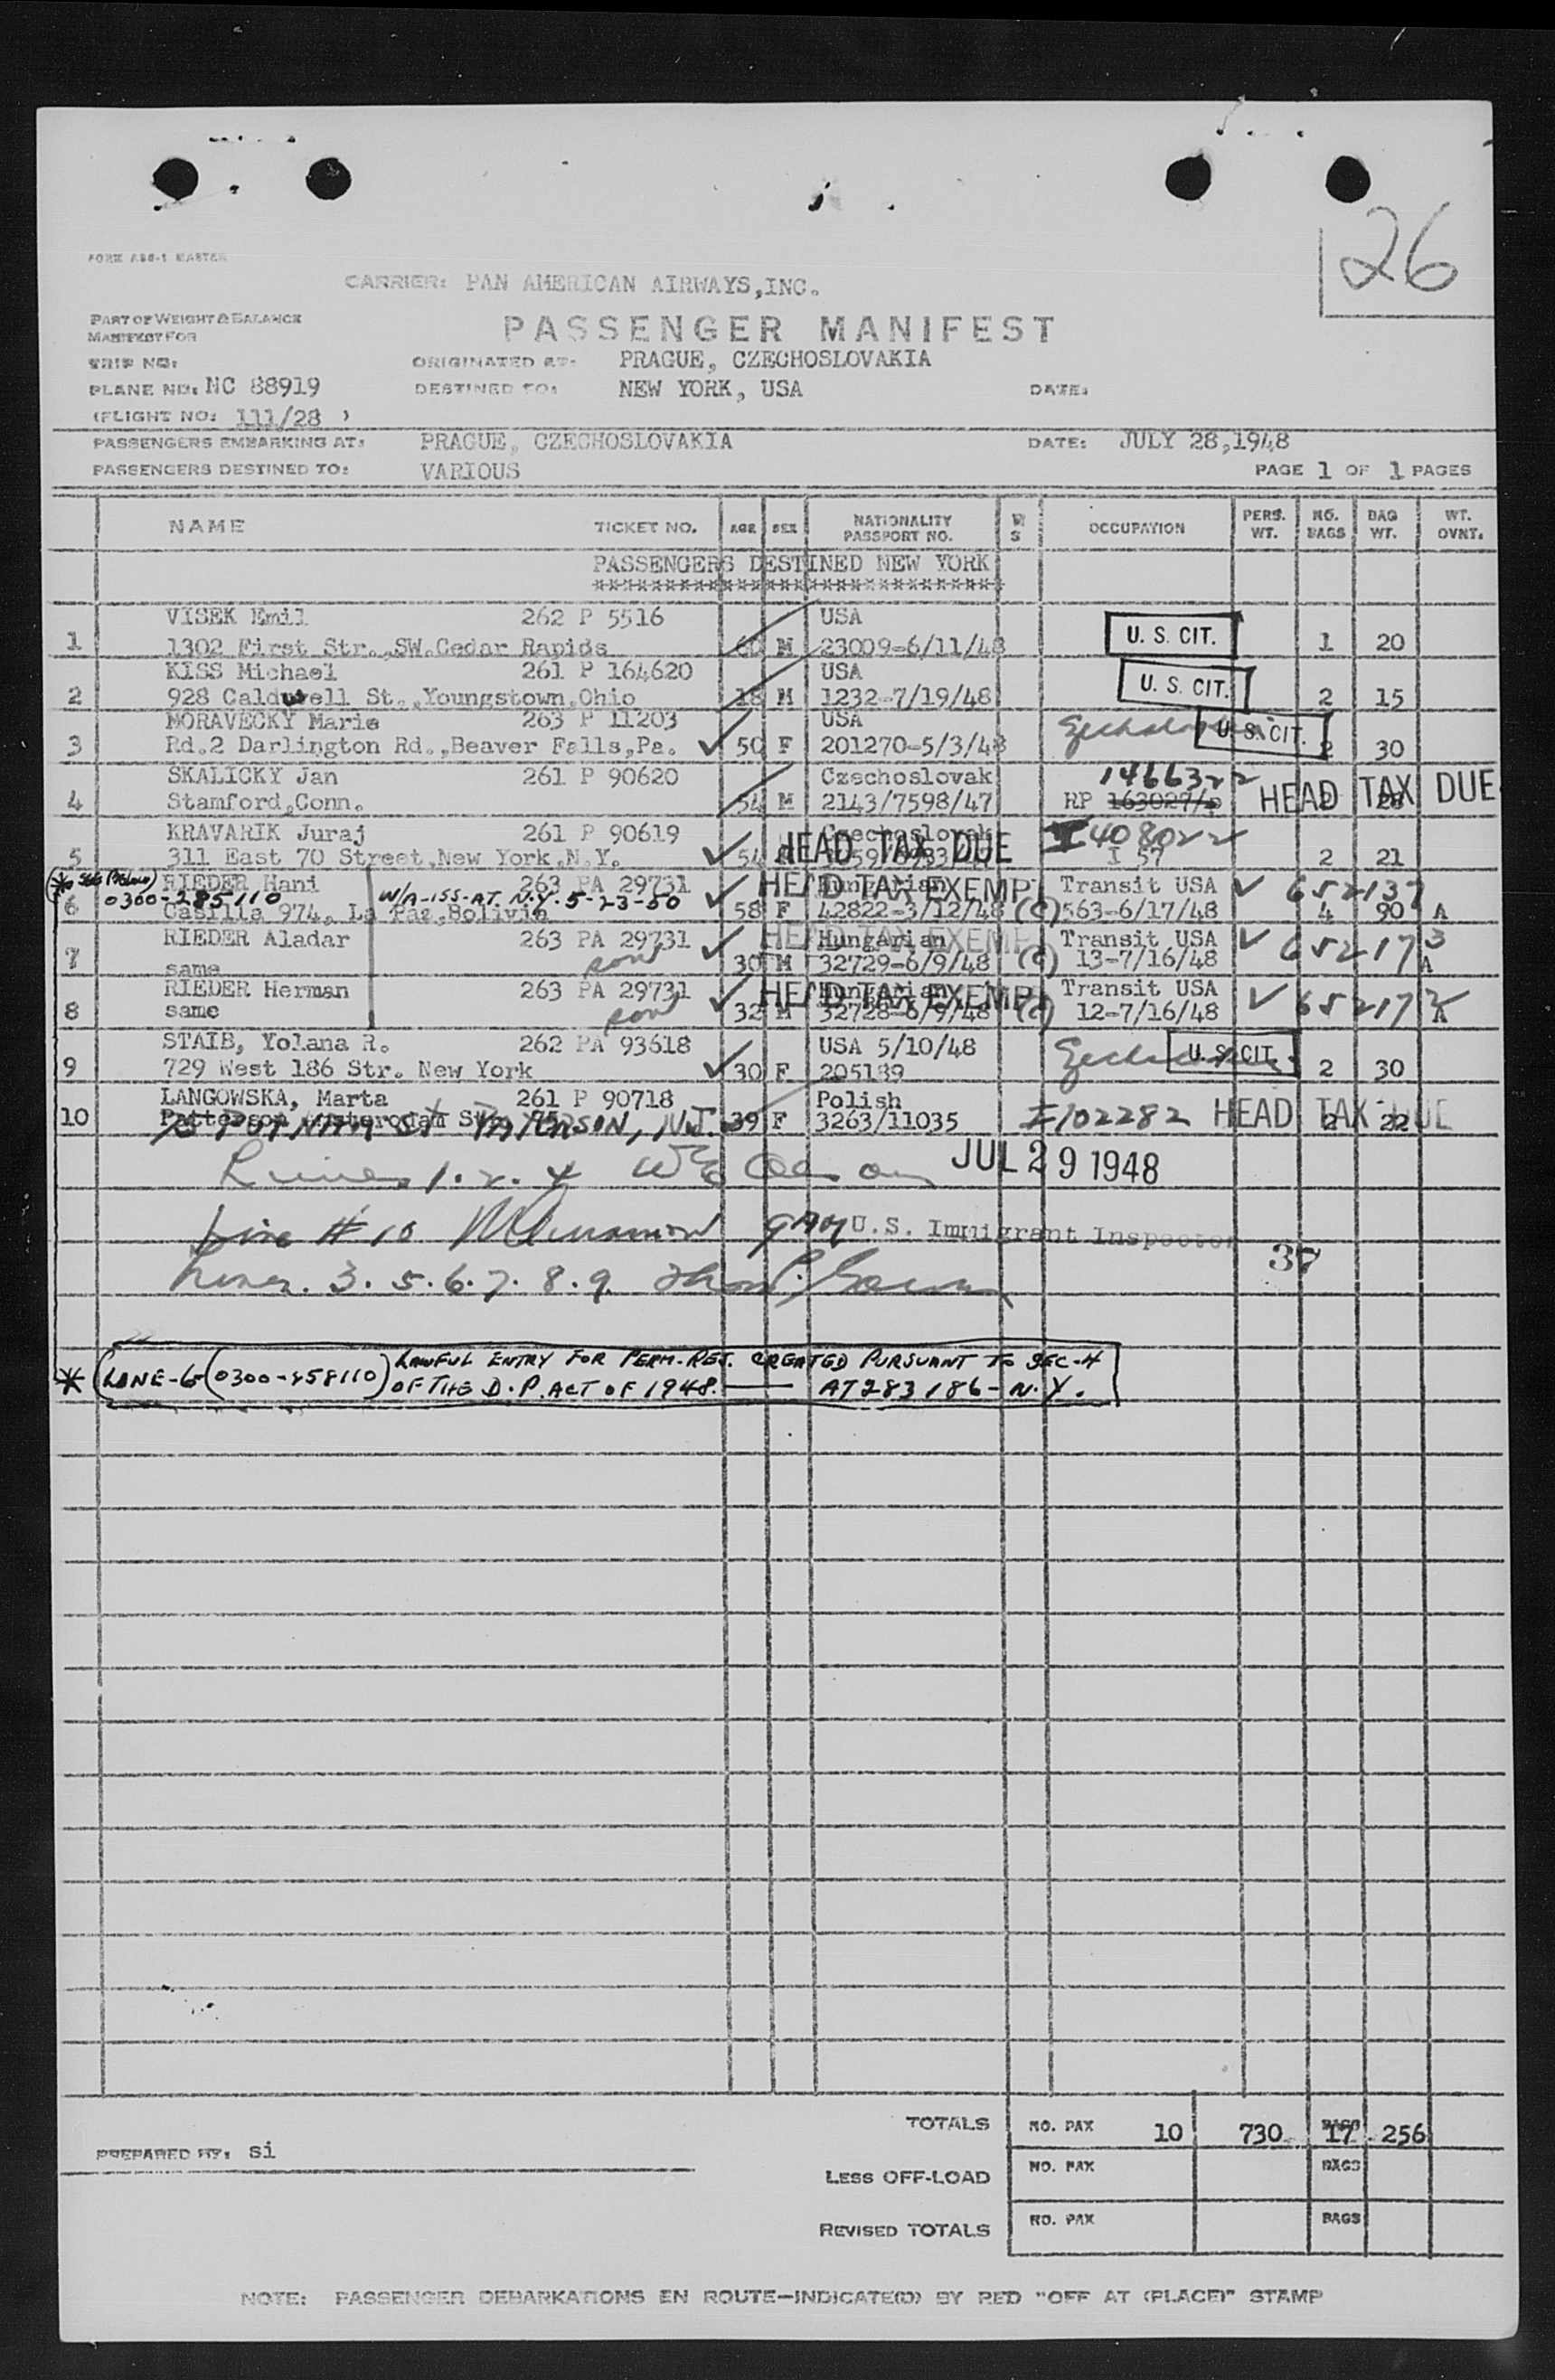 26
FORM ABG-1 MASTER
CARRIER: PAN AMERICAN AIRWAYS,INC.
PART OF WEIGHT & BALANCE
MANIFEST FOR
PASSENGER MANIFEST
TRIP NO:
ORIGINATED AT: PRAGUE, CZECHOSLOVAKIA
PLANE NO: NC 88919
DESTINED TO: NEW YORK, USA
DATE:
(FLIGHT NO: 111/28 )
PASSENGERS EMBARKING AT: PRAGUE, CZECHOSLOVAKIA DATE: JULY 28,1948
PASSENGERS DESTINED TO: VARIOUS PAGE 1 OF 1 PAGES
NAME TICKET NO. AGE SEX NATIONALITY PASSPORT NO. W S OCCUPATION PERS. WT. NO. BAGS BAG WT. WT. OVNT.
PASSENGERS DESTINED NEW YORK
****************************
VISEK Emil 262 P 5516 USA
1 1302 First Str.,SW.Cedar Rapids 60 M 23009-6/11/48 U. S. CIT. 1 20
KISS Michael 261 P 164620 USA
2 928 Caldwell St.,Youngstown,Ohio 18 M 1232-7/19/48 U. S. CIT. 2 15
MORAVECKY Marie 263 P 11203 USA
3 Rd.2 Darlington Rd.,Beaver Falls,Pa. 50 F 201270-5/3/48 U. S. CIT. 2 30
SKALICKY Jan 261 P 90620 Czechoslovak 1466322
4 Stamford,Conn. 54 M 2143/7598/47 RP HEAD TAX DUE
KRAVARIK Juraj 261 P 90619 Czechoslovak I408022
5 311 East 70 Street,New York,N.Y. 54 HEAD TAX DUE I 57 2 21
* SEE (BELOW) RIEDER Hani 263 PA 29731 HEAD TAX EXEMPT Hungarian Transit USA 652137
0300-285110 W/A-ISS-AT. N.Y. 5-23-50
6 Casilla 974, La Paz,Bolivia 58 F 42822-3/12/48 (C) 563-6/17/48 4 90 A
RIEDER Aladar 263 PA 29731 HEAD TAX EXEMPT Hungarian Transit USA 652173
7 same son 30 M 32729-6/9/48 (C) 13-7/16/48 A
RIEDER Herman 263 PA 29731 HEAD TAX EXEMPT Hungarian Transit USA 652172
8 same son 32 M 32728-6/9/48 (C) 12-7/16/48 A
STAIB, Yolana R. 262 PA 93618 USA 5/10/48
9 729 West 186 Str. New York 30 F 205139 U. S. CIT. 2 30
LANGOWSKA, Marta 261 P 90718 Polish
10 PUTNAM ST PATERSON, N.J. 39 F 3263/11035 I102282 HEAD TAX DUE 2 22
Lines 1. 2. 4 JUL 29 1948
Line # 10 U.S. Immigrant Inspector
37
Lines. 3. 5. 6. 7. 8. 9.
* LINE-6-(0300-258110) LAWFUL ENTRY FOR PERM-RES. CREATED PURSUANT TO SEC-4
OF THE D.P. ACT OF 1948. AT283186-N.Y.
TOTALS NO. PAX 10 730 BAGS 17 256
PREPARED BY: si
LESS OFF-LOAD NO. PAX BAGS
REVISED TOTALS NO. PAX BAGS
NOTE: PASSENGER DEBARKATIONS EN ROUTE—INDICATE(D) BY RED "OFF AT (PLACE)" STAMP